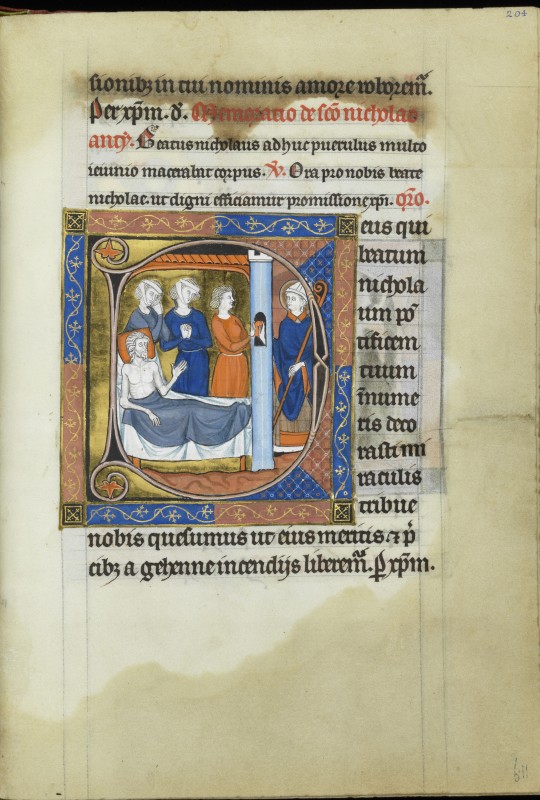 204
sionibz in tui nominis amore roborem̃.
Per xp̃m. d̃. Memoratio de sc̃o nicholao
anty᷒. Beatus nicholaus adhuc puerulus multo
ieiunio macerabat corpus. ℣. Ora pro nobis beate
nicholae. ut digni efficiamur promissione xp̃i. or̃o.
eus qui
beatum
nichola
um po᷒
tificem
tuum
ĩnume
ris deco
rasti mi
raculis
tribue
nobis quesumus ut eius meritis ⁊ p̃
cibz a gehenne incendijs liberem̃. ꝑ xp̃m.